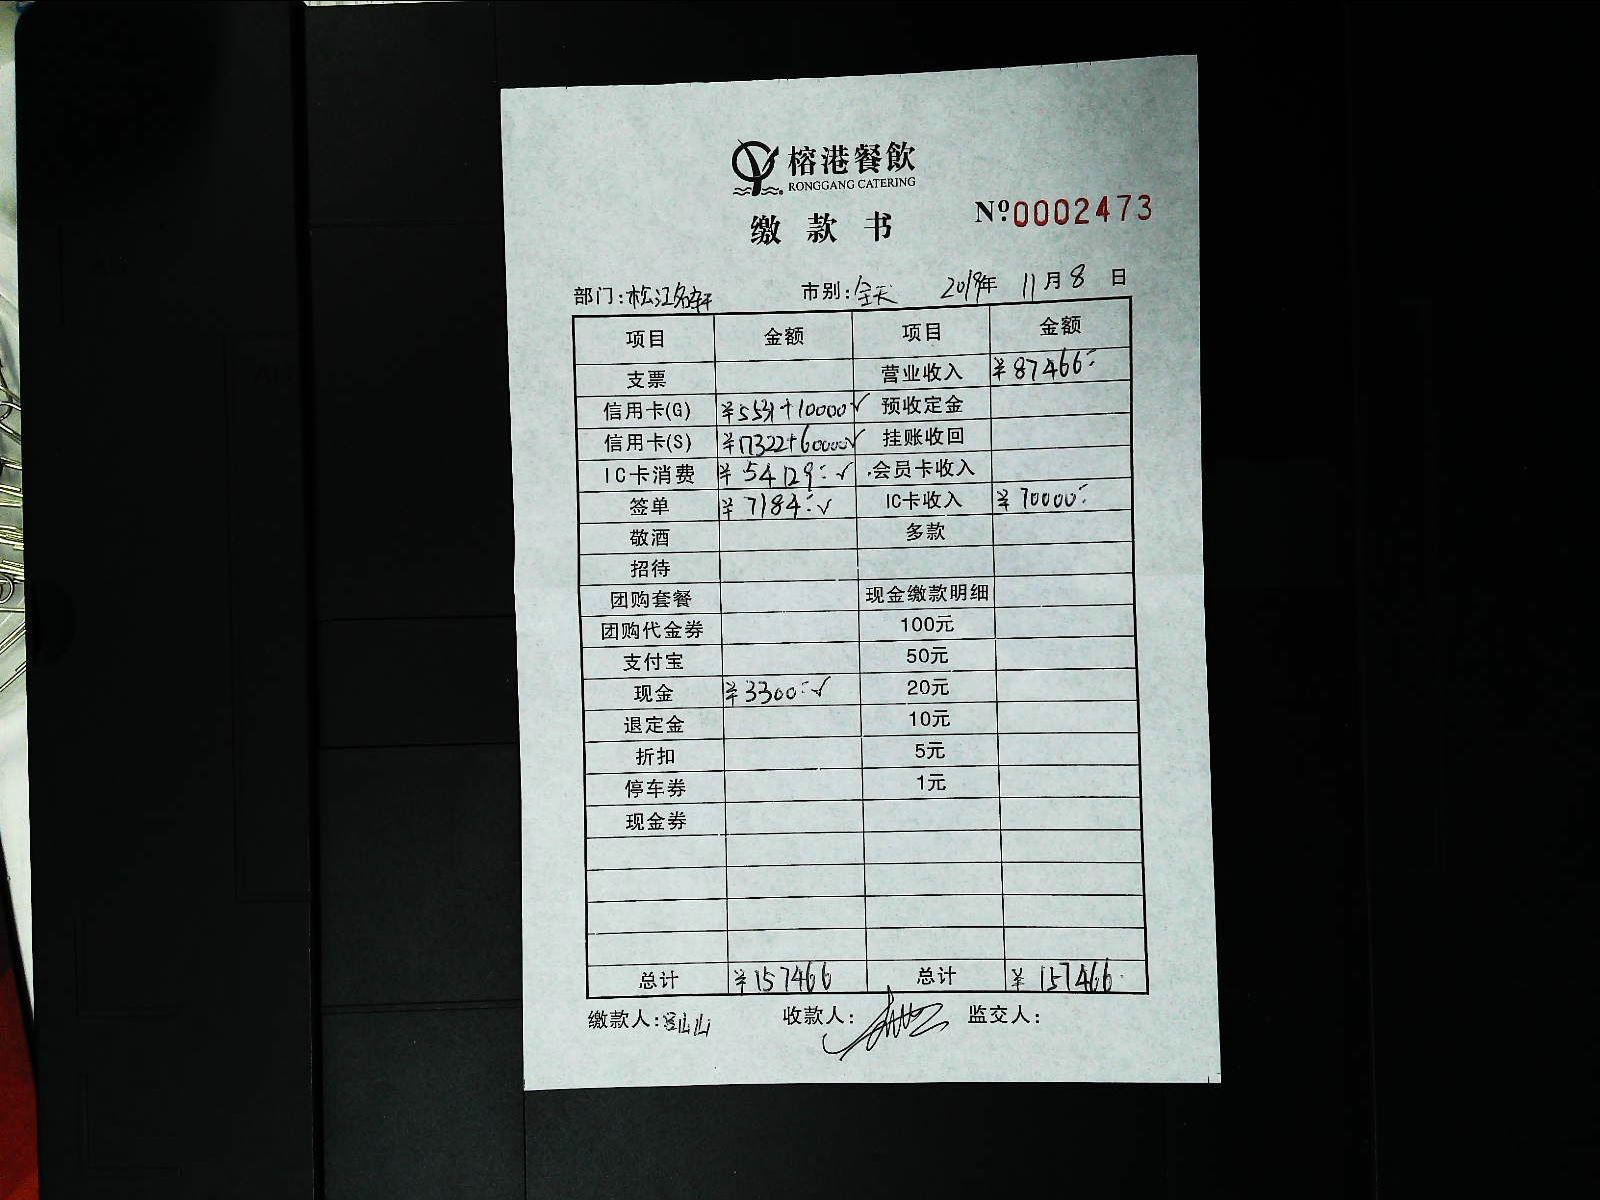 榕港餐飲
RONGGANG CATERING
缴款书
Nº.0002473
部门:松江名轩 市别:全天 2019年 11月 8 日
项目 金额 项目 金额
支票 营业收入 ¥87466:-
信用卡(G) ¥5531+10000√ 预收定金
信用卡(S) ¥17322+60000√ 挂账收回
IC卡消费 ¥54129:-√ 会员卡收入
签单 ¥7184:-√ IC卡收入 ¥70000:-
敬酒 多款
招待
团购套餐 现金缴款明细
团购代金券 100元
支付宝 50元
现金 ¥3300:-√ 20元
退定金 10元
折扣 5元
停车券 1元
现金券
总计 ¥157466 总计 ¥157466
缴款人: 收款人: 监交人: